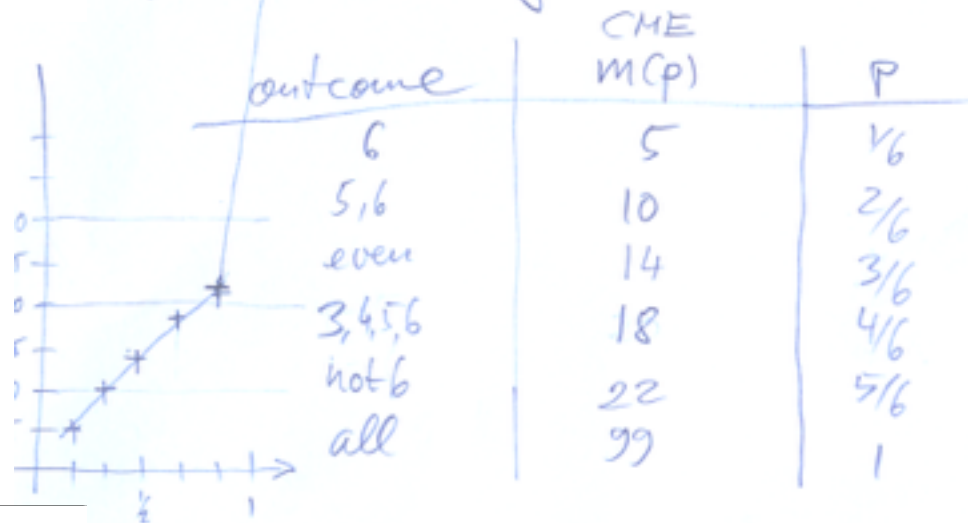 CME
outcome m(p) P
6 5 1/6
5,6 10 2/6
even 14 3/6
3,4,5,6 18 4/6
not 6 22 5/6
all 99 1
1/2 1